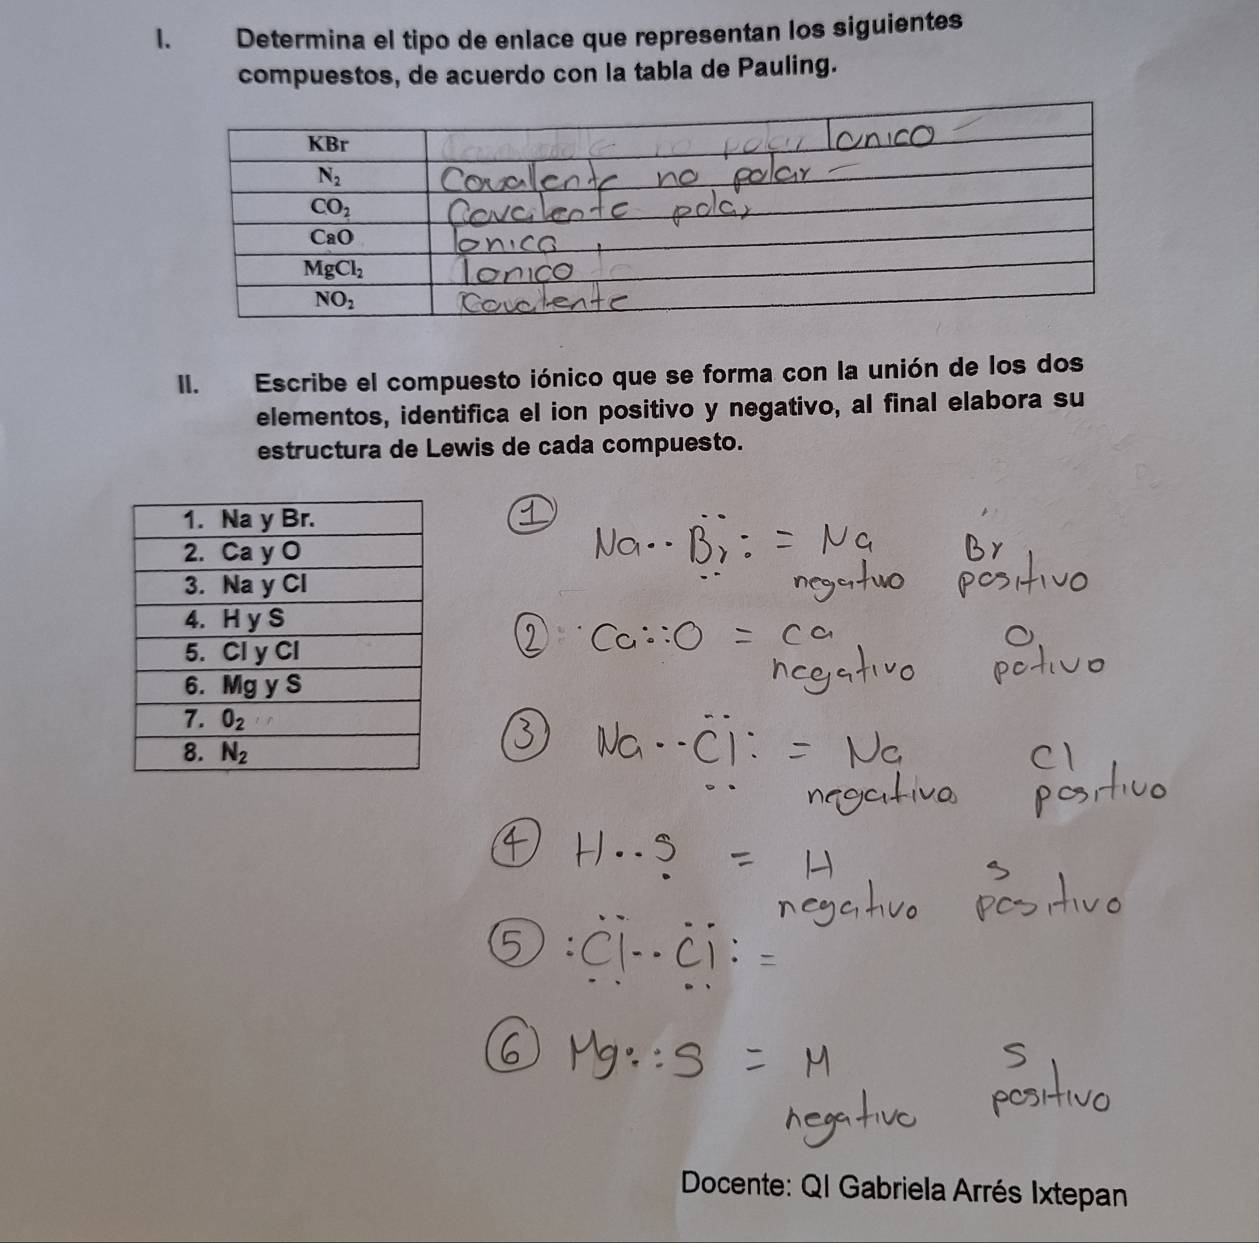 I. Determina el tipo de enlace que representan los siguientes
compuestos, de acuerdo con la tabla de Pauling.
KBr no polar Ionico
N₂ Covalente no polar
CO₂ Covalente polar
CaO Ionica
MgCl₂ Ionico
NO₂ Covalente
II. Escribe el compuesto iónico que se forma con la unión de los dos
elementos, identifica el ion positivo y negativo, al final elabora su
estructura de Lewis de cada compuesto.
1. Na y Br.
2. Ca y O
3. Na y Cl
4. H y S
5. Cl y Cl
6. Mg y S
7. 0₂
8. N₂
① Na·· Br : = Na Br
negativo positivo
② Ca::O = ca O
negativo potivo
③ Na·· Cl : = Na Cl
negativo positivo
④ H··S = H S
negativo positivo
⑤ :Cl·· Cl : =
⑥ Mg::S = M S
negativo positivo
Docente: QI Gabriela Arrés Ixtepan